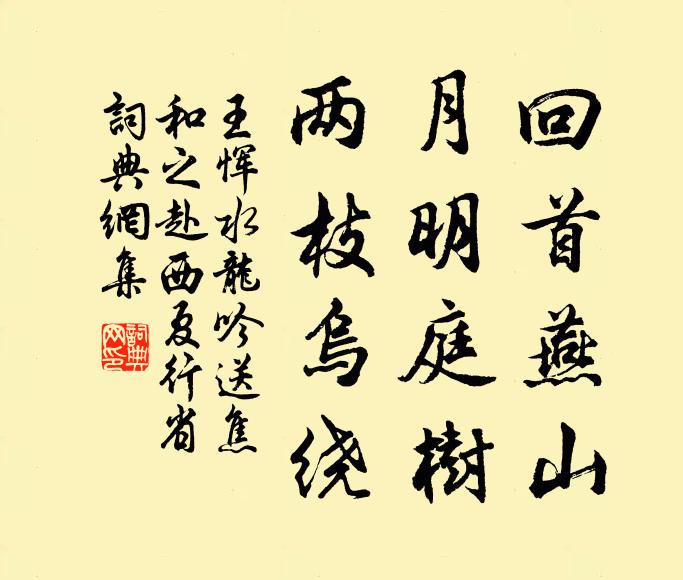 回首燕山
月明庭樹
两枝烏绕
王恽水龍吟送焦
和之赴西夏行省
詞典網集
詞典
网印